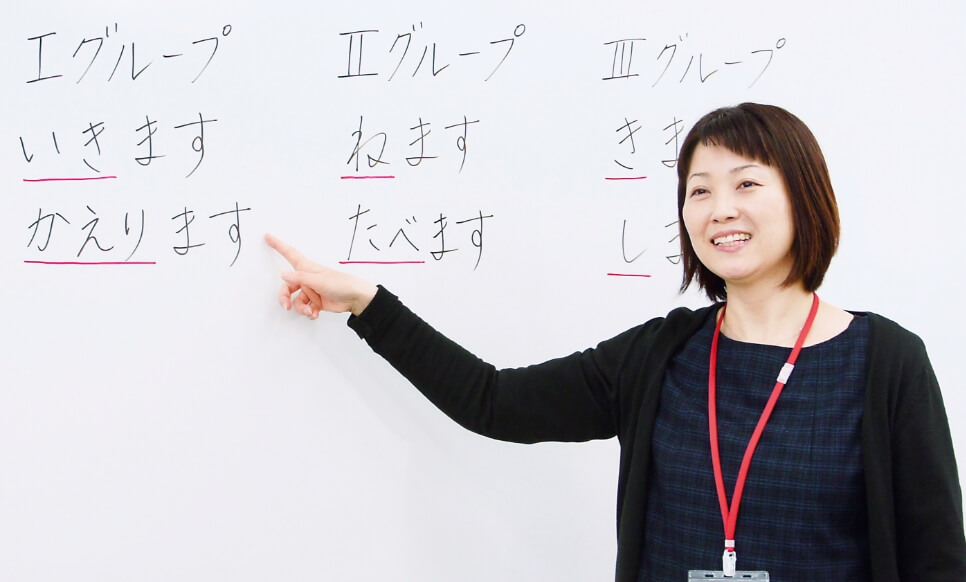 Ⅰグループ
いきます
かえります
Ⅱグループ
ねます
たべます
Ⅲグループ
きま
しま